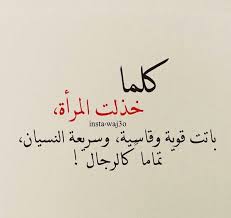 كلما
خذلت المرأة،
insta-waj3o
باتت قوية وقاسية، وسريعة النسيان،
تماما كالرجال !